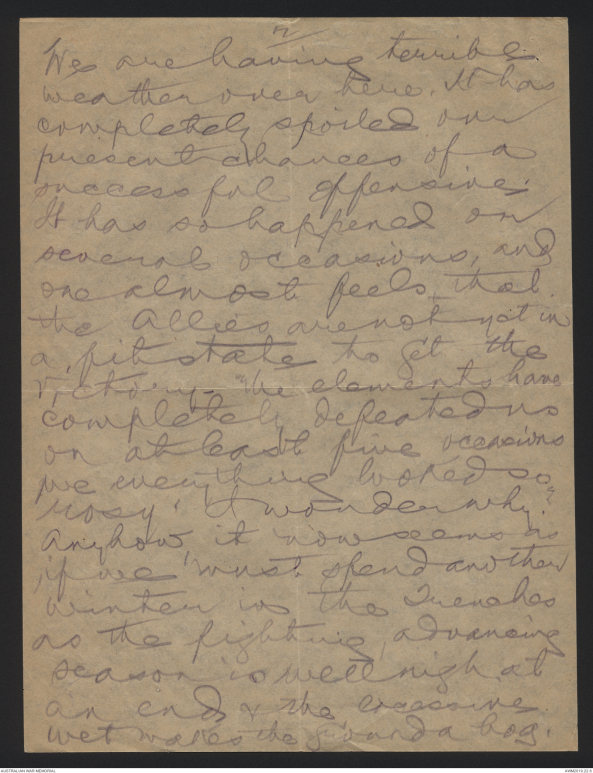 7/
We are having terrible
weather over here. It has
completely spoiled our
present chances of a
successful offensive.
It has so happened on
several occasions, and
one almost feels that
the Allies are not yet in
a fit state to get the
Victory. The elements have
completely defeated us
on at least five occasions
we everything looked so
rosy. I wonder why?
Anyhow, it now seems as
if we must spend another
winter in the Trenches
as the fighting, advancing
season is well nigh at
an end & the excessive
wet makes the ground a bog.
AUSTRALIAN WAR MEMORIAL